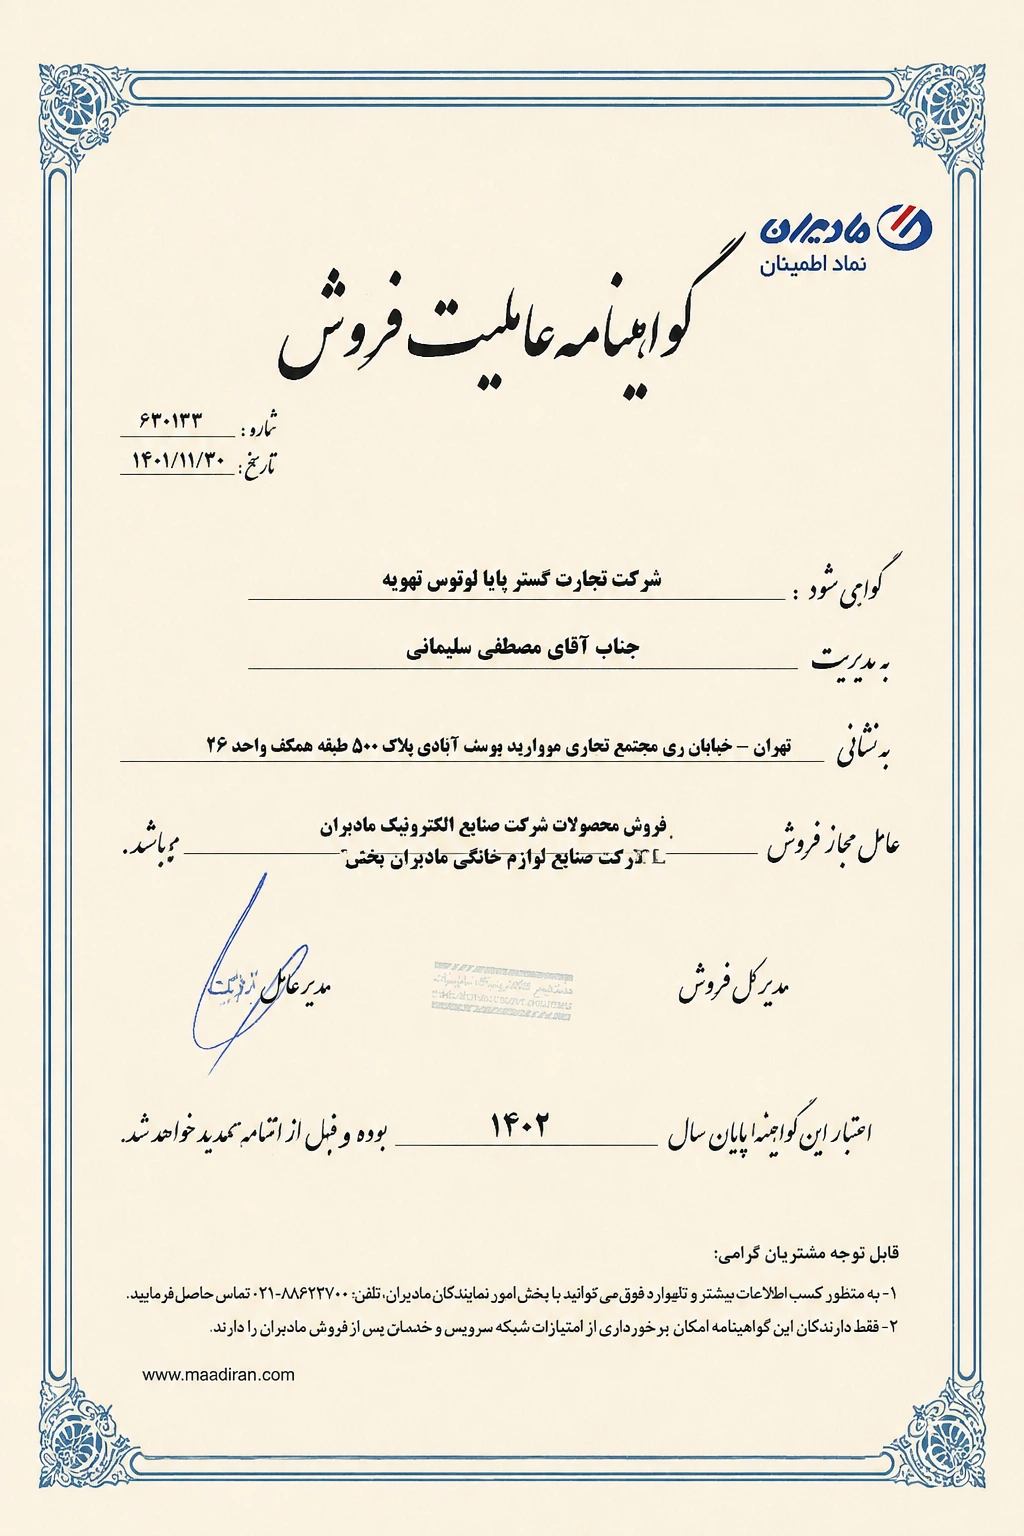 مادیران
نماد اطمینان
گواهینامه عاملیت فروش
شماره: ۶۳۰۱۳۳
تاریخ: ۱۴۰۱/۱۱/۳۰
گواهی شود : شرکت تجارت گستر پایا لوتوس تهویه
به مدیریت جناب آقای مصطفی سلیمانی
به نشانی تهران – خیابان ری مجتمع تجاری مووارید یوسف آبادی پلاک ۵۰۰ طبقه همکف واحد ۲۶
عامل مجاز فروش فروش محصولات شرکت صنایع الکترونیک مادیران
صنایع لوازم خانگی مادیران بخش
باشد.
مدیر کل فروش
مدیر عامل
اعتبار این پایان سال ۱۴۰۲ بوده و قبل از تمدید خواهد شد.
قابل توجه مشتریان گرامی:
۱- به منظور کسب اطلاعات بیشتر و فوق می توانید با بخش امور نمایندگان مادیران، تلفن: ۸۸۶۲۳۷۰۰-۰۲۱ تماس حاصل فرمایید.
۲- فقط دارندگان این گواهینامه امکان برخورداری از امتیازات شبکه سرویس و خدمات پس از فروش مادیران را دارند.
www.maadiran.com